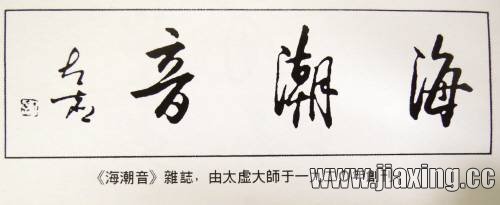 海潮音
太虛
《海潮音》雜誌，由太虛大師于一 創
www.jiaxing.cc